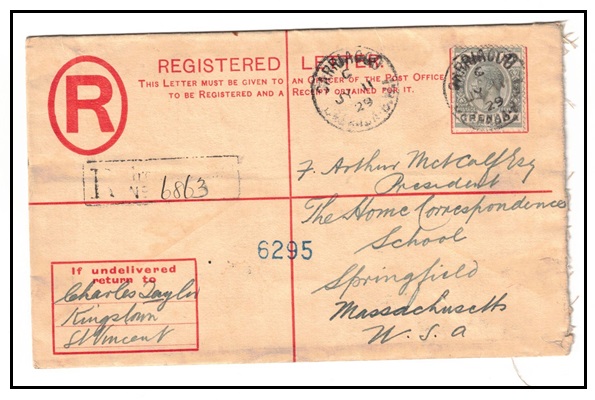 REGISTERED LETTER.
THIS LETTER MUST BE GIVEN TO AN OFFICER OF THE POST OFFICE
TO BE REGISTERED AND A RECEIPT OBTAINED FOR IT.
R
CARRIACOU
C
JY 11
29
GRENADA
CARRIACOU
C
29
GRENADA
R
No 6863
F. Arthur Metcalf Esq
President
The Home Correspondence
School
Springfield
Massachusetts
U.S.a
6295
If undelivered
return to
Charles Taylor
Kingstown
St Vincent